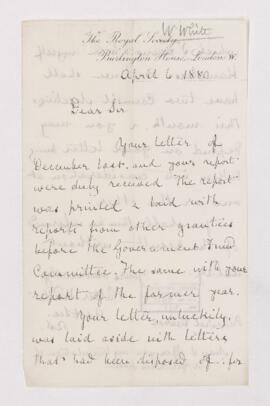 W. White
The Royal Society
Burlington House, London W.
April 6 1880
Dear Sir
Your letter, of
December last, and your report
were duly received. The report
was printed & laid with
reports from other grantees
before the Government Fund
Committee. The same with your
report of the former year.
Your letter, unluckily,
was laid aside with letters
that had been disposed of. for